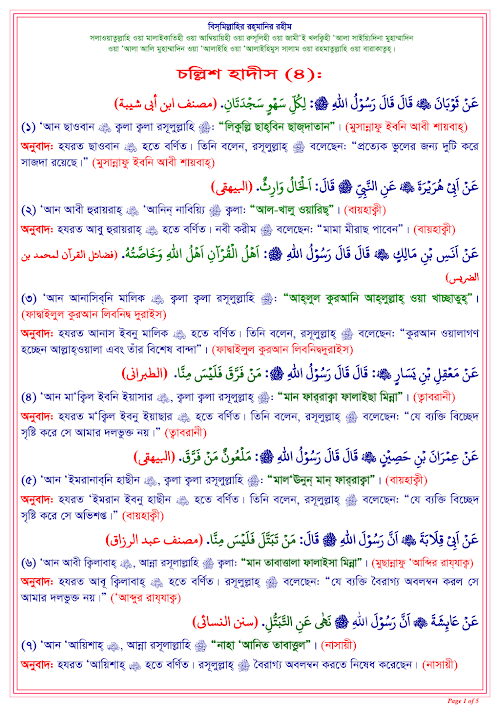 বিস্‌মিল্লাহির রহ্‌মানির রহীম
সলাওয়াতুল্লাহি ওয়া মালাইকাতিহী ওয়া আম্বিয়ায়িহী ওয়া রুসূলিহী ওয়া জামী'ই খলক্বিহী 'আলা সাইয়্যিদিনা মুহাম্মাদিন
ওয়া 'আলা আলি মুহাম্মাদিন ওয়া 'আলাইহি ওয়া 'আলাইহিমুস সালাম ওয়া রহমাতুল্লাহি ওয়া বারাকাতুহ্।
চল্লিশ হাদীস (৪):
عَنْ ثَوْبَانَ ﷺ قَالَ قَالَ رَسُوْلُ اللهِ ﷺ: لِكُلِّ سَهْوٍ سَجْدَتَانِ. (مصنف ابن أبى شيبة)
(১) 'আন ছাওবান ক্বলা ক্বলা রসূলুল্লাহি ﷺ: "লিকুল্লি ছাহ্‌বিন ছাজ্‌দাতান"। (মুসান্নাফু ইবনি আবী শায়বাহ্)
অনুবাদ: হযরত ছাওবান হতে বর্ণিত। তিনি বলেন, রসূলুল্লাহ্ ﷺ বলেছেন: "প্রত্যেক ভুলের জন্য দুটি করে
সাজদা রয়েছে।" (মুসান্নাফু ইবনি আবী শায়বাহ্)
عَنْ اَبِىْ هُرَيْرَةَ عَنِ النَّبِىِّ ﷺ قَالَ: اَلْخَالُ وَارِثٌ. (البيهقى)
(২) 'আন আবী হুরায়রাহ্ 'আনিন্ নাবিয়্যি ﷺ ক্বলা: "আল-খালু ওয়ারিছ্"। (বায়হাক্বী)
অনুবাদ: হযরত আবু হুরায়রাহ্ হতে বর্ণিত। নবী করীম ﷺ বলেছেন: "মামা মীরাছ পাবেন"। (বায়হাক্বী)
عَنْ اَنَسِ بْنِ مَالِكٍ قَالَ قَالَ رَسُوْلُ اللهِ ﷺ: اَهْلُ الْقُرْآنِ اَهْلُ اللهِ وَخَاصَّتُهُ. (فضائل القرآن لمحمد بن
الضريس)
(৩) 'আন আনাসিব্‌নি মালিক ক্বলা ক্বলা রসূলুল্লাহি ﷺ: "আহ্‌লুল কুরআনি আহ্‌লুল্লাহ্ ওয়া খাচ্ছাতুহ্"।
(ফাদ্বাইলুল কুরআন লিবনিদ্ব দুরাইস)
অনুবাদ: হযরত আনাস ইবনু মালিক হতে বর্ণিত। তিনি বলেন, রসূলুল্লাহ্ ﷺ বলেছেন: "কুরআন ওয়ালাগণ
হচ্ছেন আল্লাহ্ওয়ালা এবং তাঁর বিশেষ বান্দা"। (ফাদ্বাইলুল কুরআন লিবনিদ্বদুরাইস)
عَنْ مَعْقِلِ بْنِ يَسَارٍ: قَالَ قَالَ رَسُوْلُ اللهِ ﷺ: مَنْ فَرَّقَ فَلَيْسَ مِنَّا. (الطبرانى)
(৪) 'আন মা'ক্বিল ইবনি ইয়াসার, ক্বলা ক্বলা রসূলুল্লাহি ﷺ: "মান ফার্‌রাক্বা ফালাইছা মিন্না"। (ত্ববারানী)
অনুবাদ: হযরত ম'ক্বিল ইবনু ইয়াছার হতে বর্ণিত। তিনি বলেন, রসূলুল্লাহ্ ﷺ বলেছেন: "যে ব্যক্তি বিচ্ছেদ
সৃষ্টি করে সে আমার দলভুক্ত নয়।" (ত্ববারানী)
عَنْ عِمْرَانَ بْنِ حَصِيْنٍ قَالَ قَالَ رَسُوْلُ اللهِ ﷺ: مَلْعُوْنٌ مَنْ فَرَّقَ. (البيهقى)
(৫) 'আন 'ইমরানাব্‌নি হাছীন, ক্বলা ক্বলা রসূলুল্লাহি ﷺ: "মাল'ঊনুন্ মান্ ফার্‌রাক্বা"। (বায়হাক্বী)
অনুবাদ: হযরত 'ইমরান ইবনু হাছীন হতে বর্ণিত। তিনি বলেন, রসূলুল্লাহ্ ﷺ বলেছেন: "যে ব্যক্তি বিচ্ছেদ
সৃষ্টি করে সে অভিশপ্ত।" (বায়হাক্বী)
عَنْ اَبِىْ قِلَابَةَ اَنَّ رَسُوْلَ اللهِ ﷺ قَالَ: مَنْ تَبَتَّلَ فَلَيْسَ مِنَّا. (مصنف عبد الرزاق)
(৬) 'আন আবী ক্বিলাবাহ্, আন্না রসূলাল্লাহি ﷺ ক্বলা: "মান তাবাত্তালা ফালাইসা মিন্না"। (মুছান্নাফু 'আব্দির রায্‌যাক্ব)
অনুবাদ: হযরত আবূ ক্বিলাবাহ্ হতে বর্ণিত। রসূলুল্লাহ্ ﷺ বলেছেন: "যে ব্যক্তি বৈরাগ্য অবলম্বন করল সে
আমার দলভুক্ত নয়।" ('আব্দুর রায্‌যাক্ব)
عَنْ عَايِشَةَ اَنَّ رَسُوْلَ اللهِ ﷺ نَهٰى عَنِ التَّبَتُّلِ. (سنن النسائى)
(৭) 'আন 'আয়িশাহ্, আন্না রসূলাল্লাহি ﷺ "নাহা 'আনিত তাবাত্তুল"। (নাসায়ী)
অনুবাদ: হযরত 'আয়িশাহ্ হতে বর্ণিত। রসূলুল্লাহ্ ﷺ বৈরাগ্য অবলম্বন করতে নিষেধ করেছেন। (নাসায়ী)
Page 1 of 8